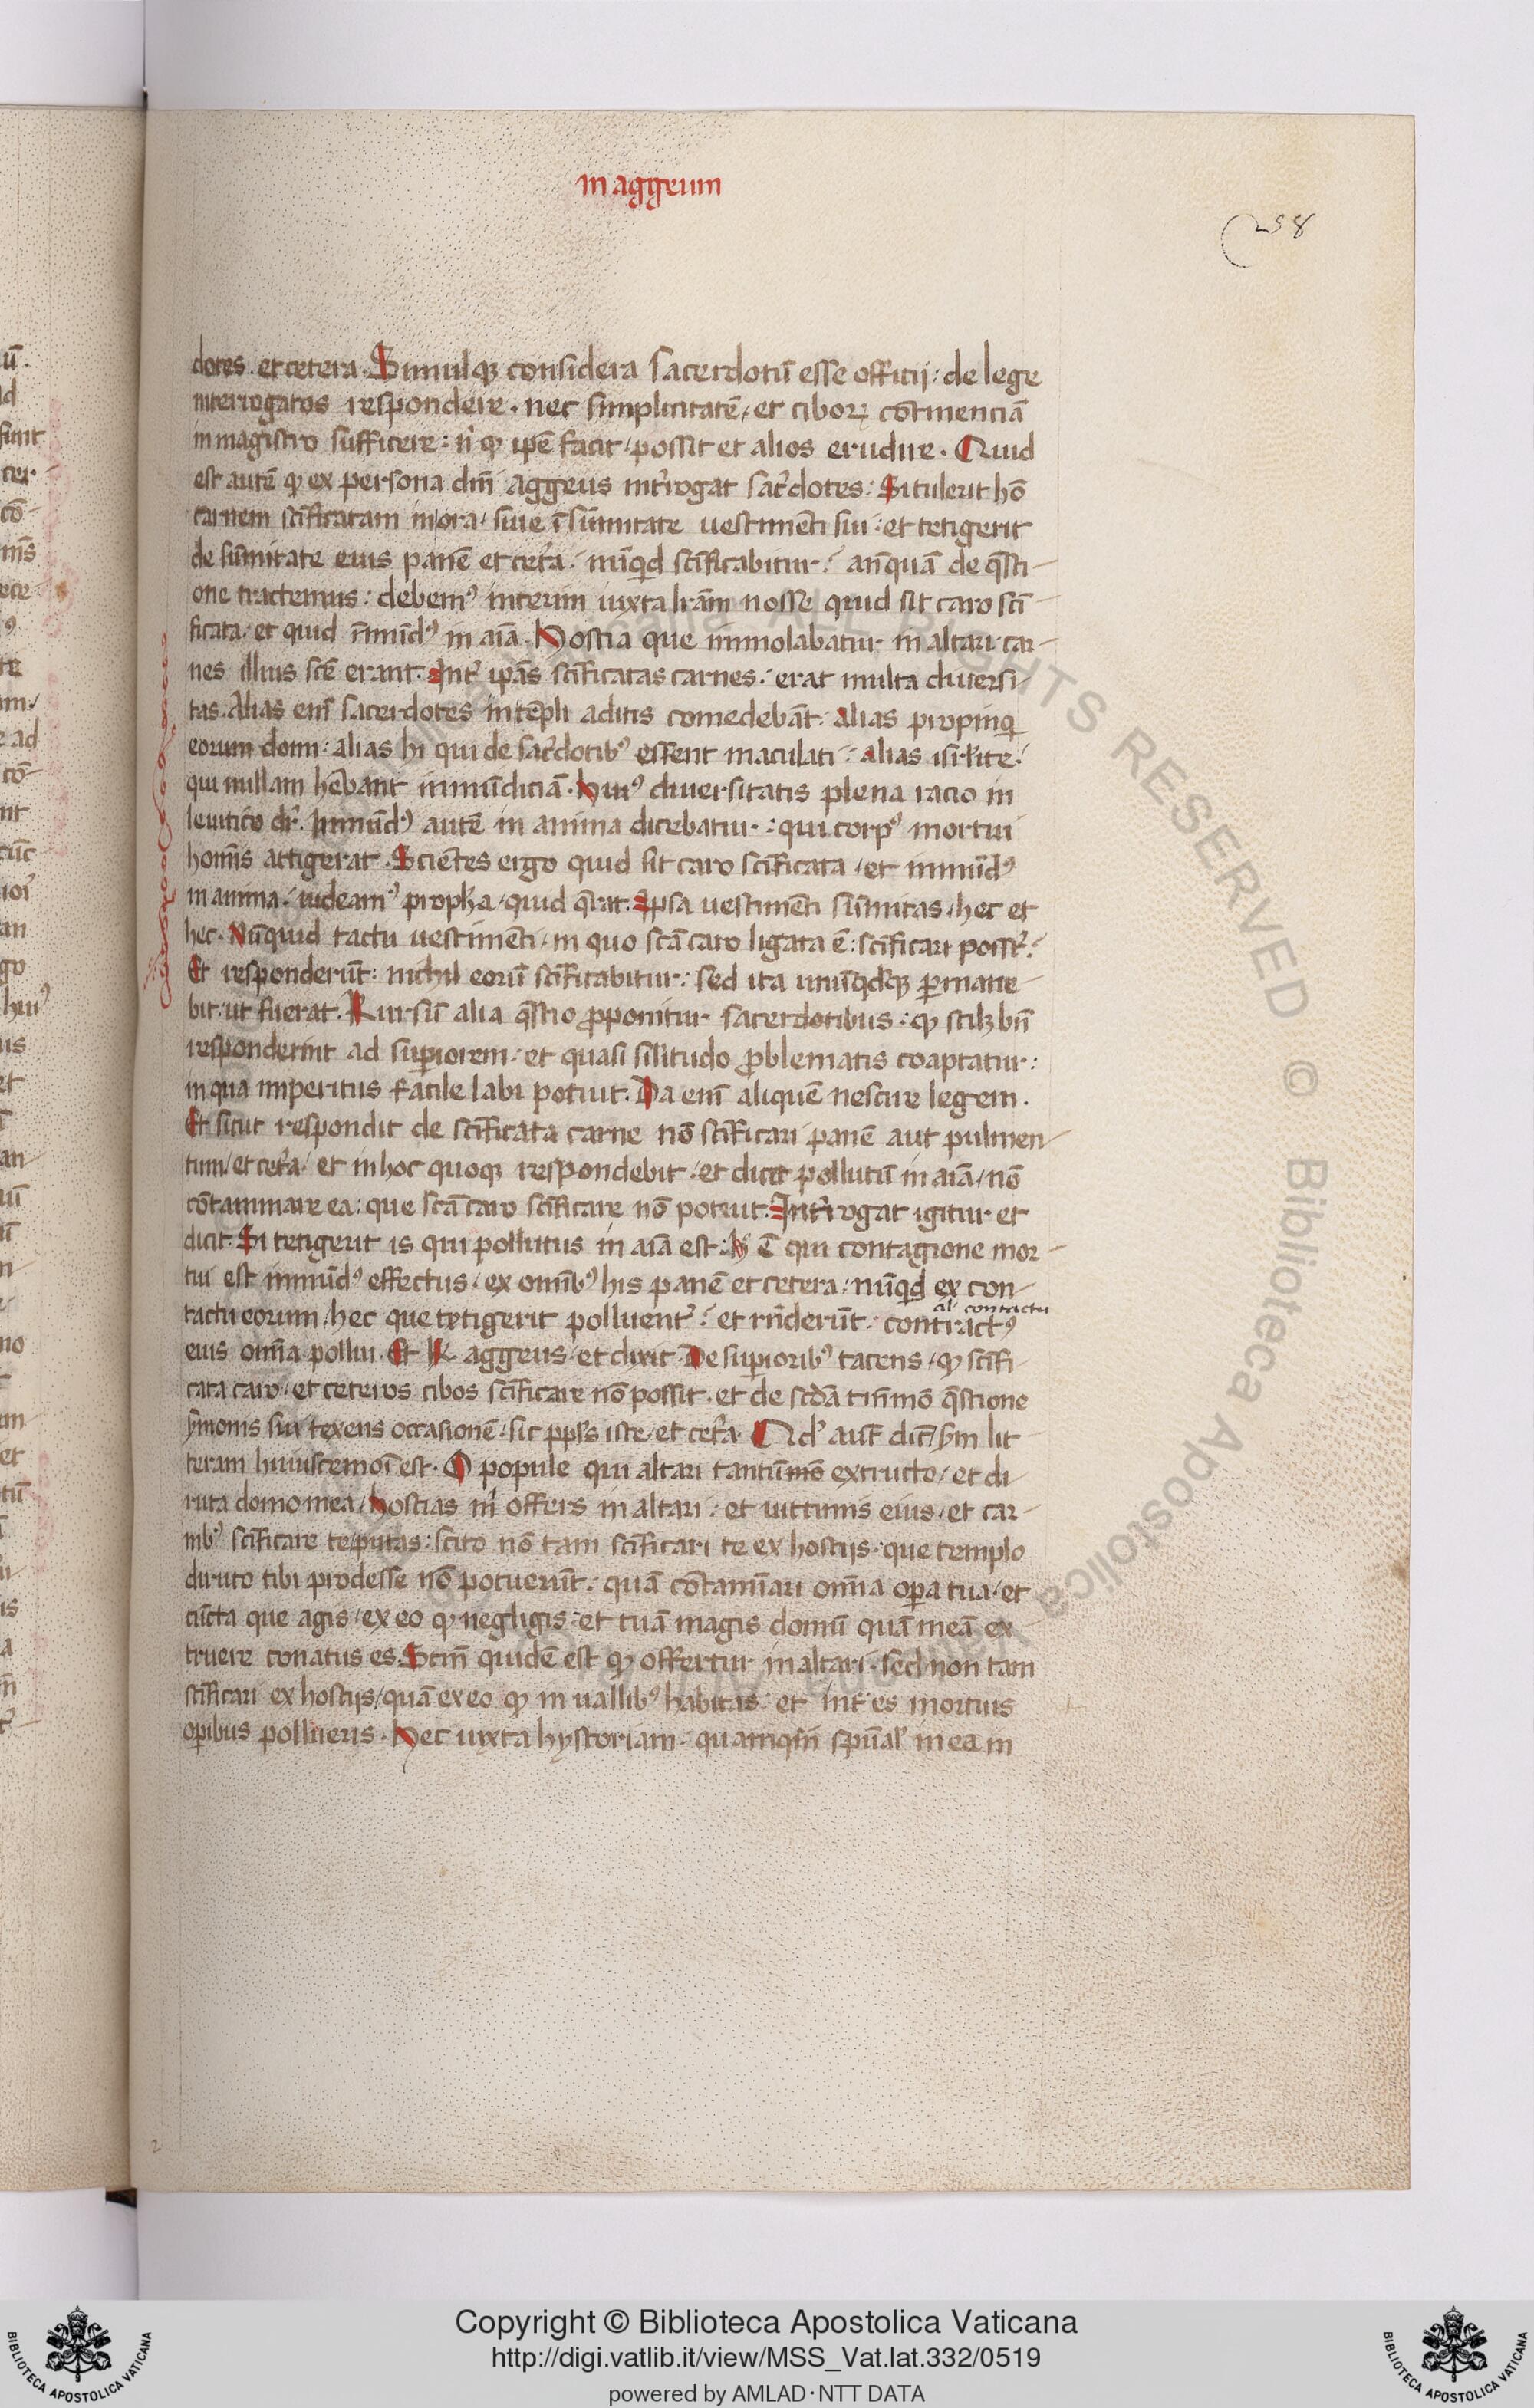 in aggeum
258
dotes. et cetera. Simulqꝫ considera sacerdotū esse officij: de lege
interrogatos respondere. nec simplicitatē/ et ciborꝝ cōtinenciā
in magistro sufficere: n̄ ꝙ ip̄e facit/ possit et alios erudire. Quid
est autē ꝙ ex persona dn̄i aggeus int̄rogat sac̄dotes: Si tulerit hō
carnem sc̄ificatam in ora/ siue ī sūmitate uestimēti sui: et tetigerit
de sūmitate eius panē et cet̄a/ nūqid sc̄ificabitur? anꝙuā de q̄sti-
one tractemus: debemꝰ interim iuxta lr̄am nosse quid sit caro scī-
ficata/ et quid īmūdꝰ in aīa. Hostia que immolabatur in altari car-
nes illius scē erant. Int̄ ip̄as sc̄ificatas carnes: erat multa diuersi-
tas. Alias enī sacerdotes in tēpli aditis comedebāt: alias propinqi
eorum domi: alias hi qui de sac̄dotibꝰ essent maculati: alias isr̄lite/
qui nullam hēbant immūdiciā. Huiꝰ diuersitatis plena racio in
leuitico dr̄. Immūdꝰ autē in anima dicebatur: qui corpꝰ mortui
homīs attigerat. Sciētes ergo quid sit caro sc̄ificata/ et immūdꝰ
in anima: uideamꝰ propha/ quid q̄rat. Ipsa uestimēti sūmitas/ hec et
hec. Nūquid tactu uestimēti/ in quo scā caro ligata ē: sc̄ificari poss̄?
Et responderūt: nichil eorū sc̄ificabitur: sed ita unūqdꝙ ꝑmane-
bit: ut fuerat. Rursū alia q̄stio ꝓponitur sacerdotibus: ꝙ scilꝫ bn̄
responderint ad suꝑiorem: et quasi sil̄itudo ꝓblematis coaptatur:
in qua imperitus facile labi potuit. Da enī aliquē nescire legem.
Et sicut respondit de sc̄ificata carne nō sc̄ificari panē aut pulmen-
tum/ et cet̄a/ et in hoc quoqꝫ respondebit/ et dicit pollutū in aīa/ nō
cōtaminare ea: que scā caro sc̄ificare nō potuit. Int̄rogat igitur et
dicit. Si tetigerit is qui pollutus in aīa est: h̄ ē qui contagione mor-
tui est immūdꝰ effectus/ ex omībꝰ his panē et cetera: nūqid ex con-
al̄ contactu
tactu eorum/ hec que tetigerit polluent̄? et rn̄derūt: contractꝰ
eius omīa pollui. Et R̄ aggeus/ et dixit. De suꝑioribꝰ tacens/ ꝙ sc̄ifi-
cata caro/ et ceteros cibos sc̄ificare nō possit. et de sc̄da tm̄mō q̄stione
s̄monis sui texens occasionē: sic ppl̄s iste/ et cet̄a. Qd̓ aut̄ dic̄/ s̄m lit-
teram huiuscemōi est. O popule qui altari tantūmō extructo/ et di-
ruta domo mea/ hostias m̄ offers in altari: et uictimis eius/ et car-
nibꝰ sc̄ificare te putas: scito nō tam sc̄ificari te ex hostijs: que templo
diruto tibi prodesse nō potuerūt: quā cōtamīari omīa oꝑa tua/ et
cūcta que agis/ ex eo ꝙ negligis: et tuā magis domū quā meā ex-
truere conatus es. Scm̄ quidē est ꝙ offertur in altari. sed non tam
sc̄ificari ex hostijs/ quā ex eo ꝙ in uallibꝰ habitas: et int̄ es mortuis
oꝑibus pollueris. Hec iuxta hystoriam. quamqm̄ spūal̄ in ea in